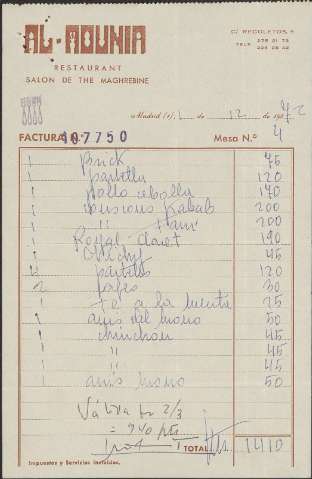 AL-MOUNIA
RESTAURANT
SALON DE THE MAGHREBINE
C/ RECOLETOS, 5
TELS.
Madrid (1) 1 de 12 de 1972
FACTURA N.º 107750 Mesa N.º 4
1 Brick 75
1 pastella 120
1 pollo cebolla 170
1 couscous Kabab 200
1 " " 200
1 190
1 45
pastels 120
2 cafes 30
1 te a la menta 25
1 anis del mono 50
1 chinchon 45
1 " 45
1 " 45
1 anis mono 50
2/3
= 940 pts
TOTAL 1410
Impuestos y Servicios incluidos,